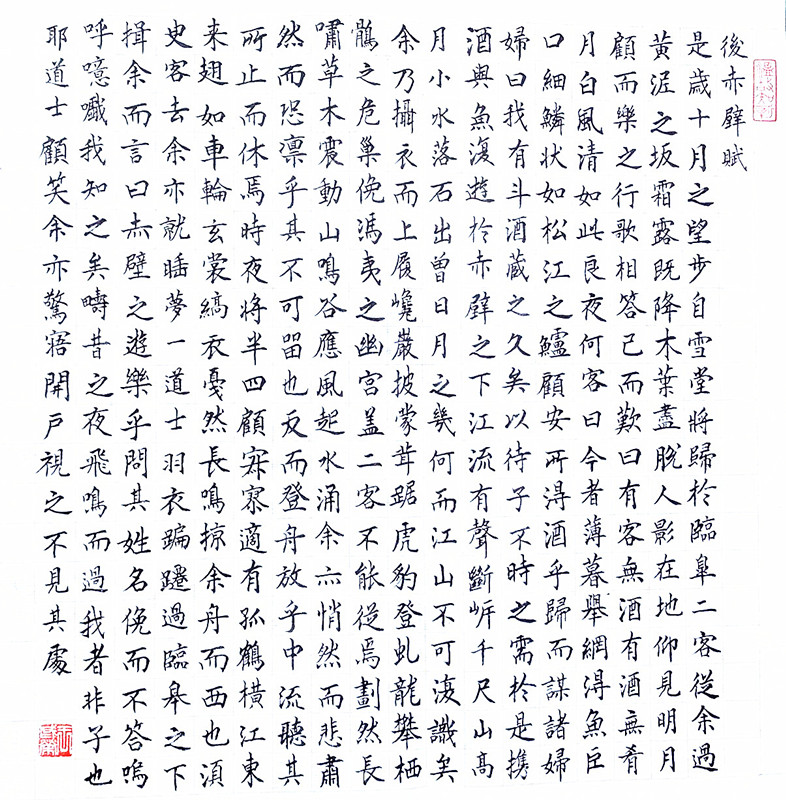 後赤壁賦
是歲十月之望步自雪堂將歸於臨皐二客從余過
黃泥之坂霜露既降木葉盡脫人影在地仰見明月
顧而樂之行歌相答已而歎曰有客無酒有酒無肴
月白風清如此良夜何客曰今者薄暮舉網得魚巨
口細鱗狀如松江之鱸顧安所得酒乎歸而謀諸婦
婦曰我有斗酒藏之久矣以待子不時之需於是攜
酒與魚復遊於赤壁之下江流有聲斷岸千尺山高
月小水落石出曾日月之幾何而江山不可復識矣
余乃攝衣而上履巉巖披蒙茸踞虎豹登虬龍攀栖
鶻之危巢俛馮夷之幽宮蓋二客不能從焉劃然長
嘯草木震動山鳴谷應風起水涌余亦悄然而悲肅
然而恐凜乎其不可留也反而登舟放乎中流聽其
所止而休焉時夜將半四顧寂寥適有孤鶴橫江東
来翅如車輪玄裳縞衣戛然長鳴掠余舟而西也須
臾客去余亦就睡夢一道士羽衣蹁躚過臨皋之下
揖余而言曰赤壁之遊樂乎問其姓名俛而不答嗚
呼噫嚱我知之矣疇昔之夜飛鳴而過我者非子也
耶道士顧笑余亦驚寤開戶視之不見其處